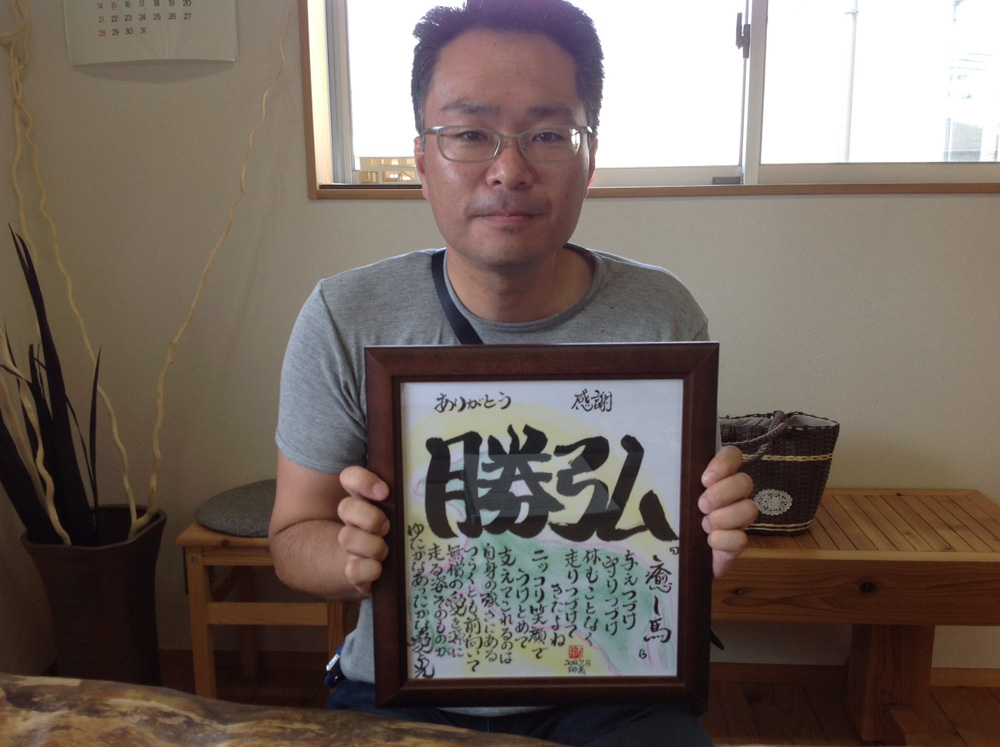 14 15 16 17 18 19 20
21 22 23 24 25 26 27
28 29 30 31
ありがとう 感謝
勝弘
"癒し馬"
与えつづけ
守りつづけ
休むことなく
走りつづけて
きたよね
ニッコリ笑顔で
うけとめて
支えてこれるのは
自身の強さにある
つらくとも前向いて
無償の愛を胸に
走る姿そのものが
ゆたかであったかな